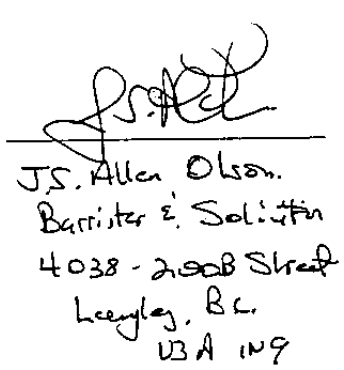 J.S. Allen Olson.
Barrister & Solicitor
4038 - 200B Street
Langley, B.C.
V3A 1N9